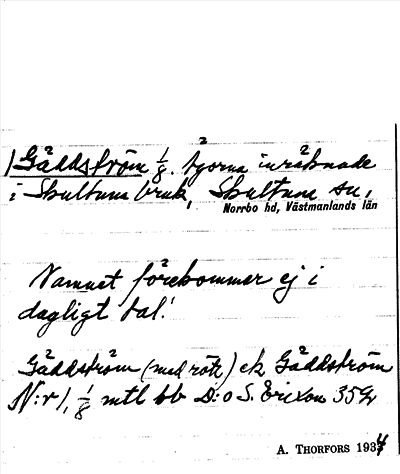 Gäddström 1/8. byorna inräknade
i Skultuna bruk, Skultuna sn,
Norrbo hd, Västmanlands län
Namnet förekommer ej i
dagligt tal!
Gäddström (med rätt) ek Gäddström
N:r 1, 1/8 mtl bb D:o S. Erixon 35
A. THORFORS 1934